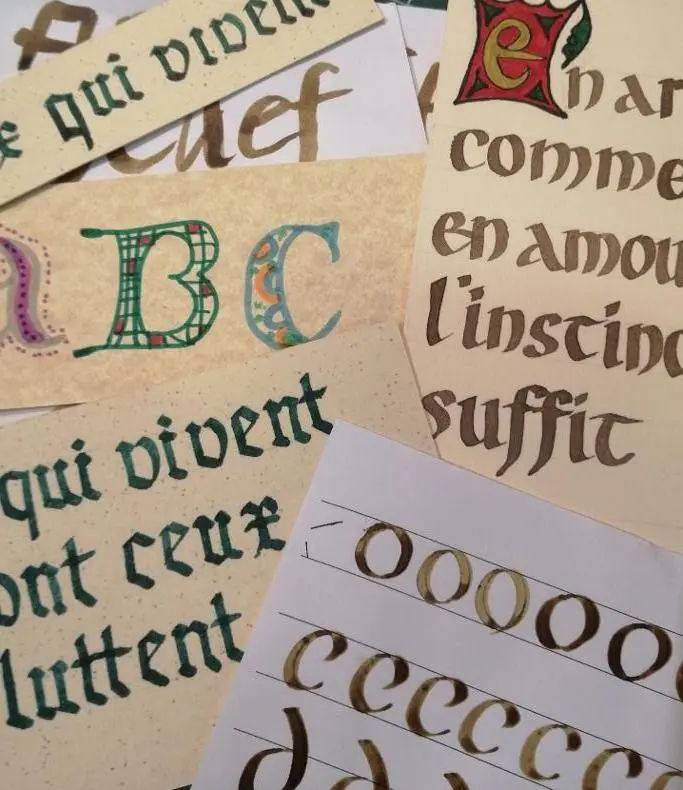 qui vivent
def
A B C
En ar
comme
en amou
l'instinc
suffit
qui vivent
ont ceux
luttent
o o o o o
c c c c c c
d d